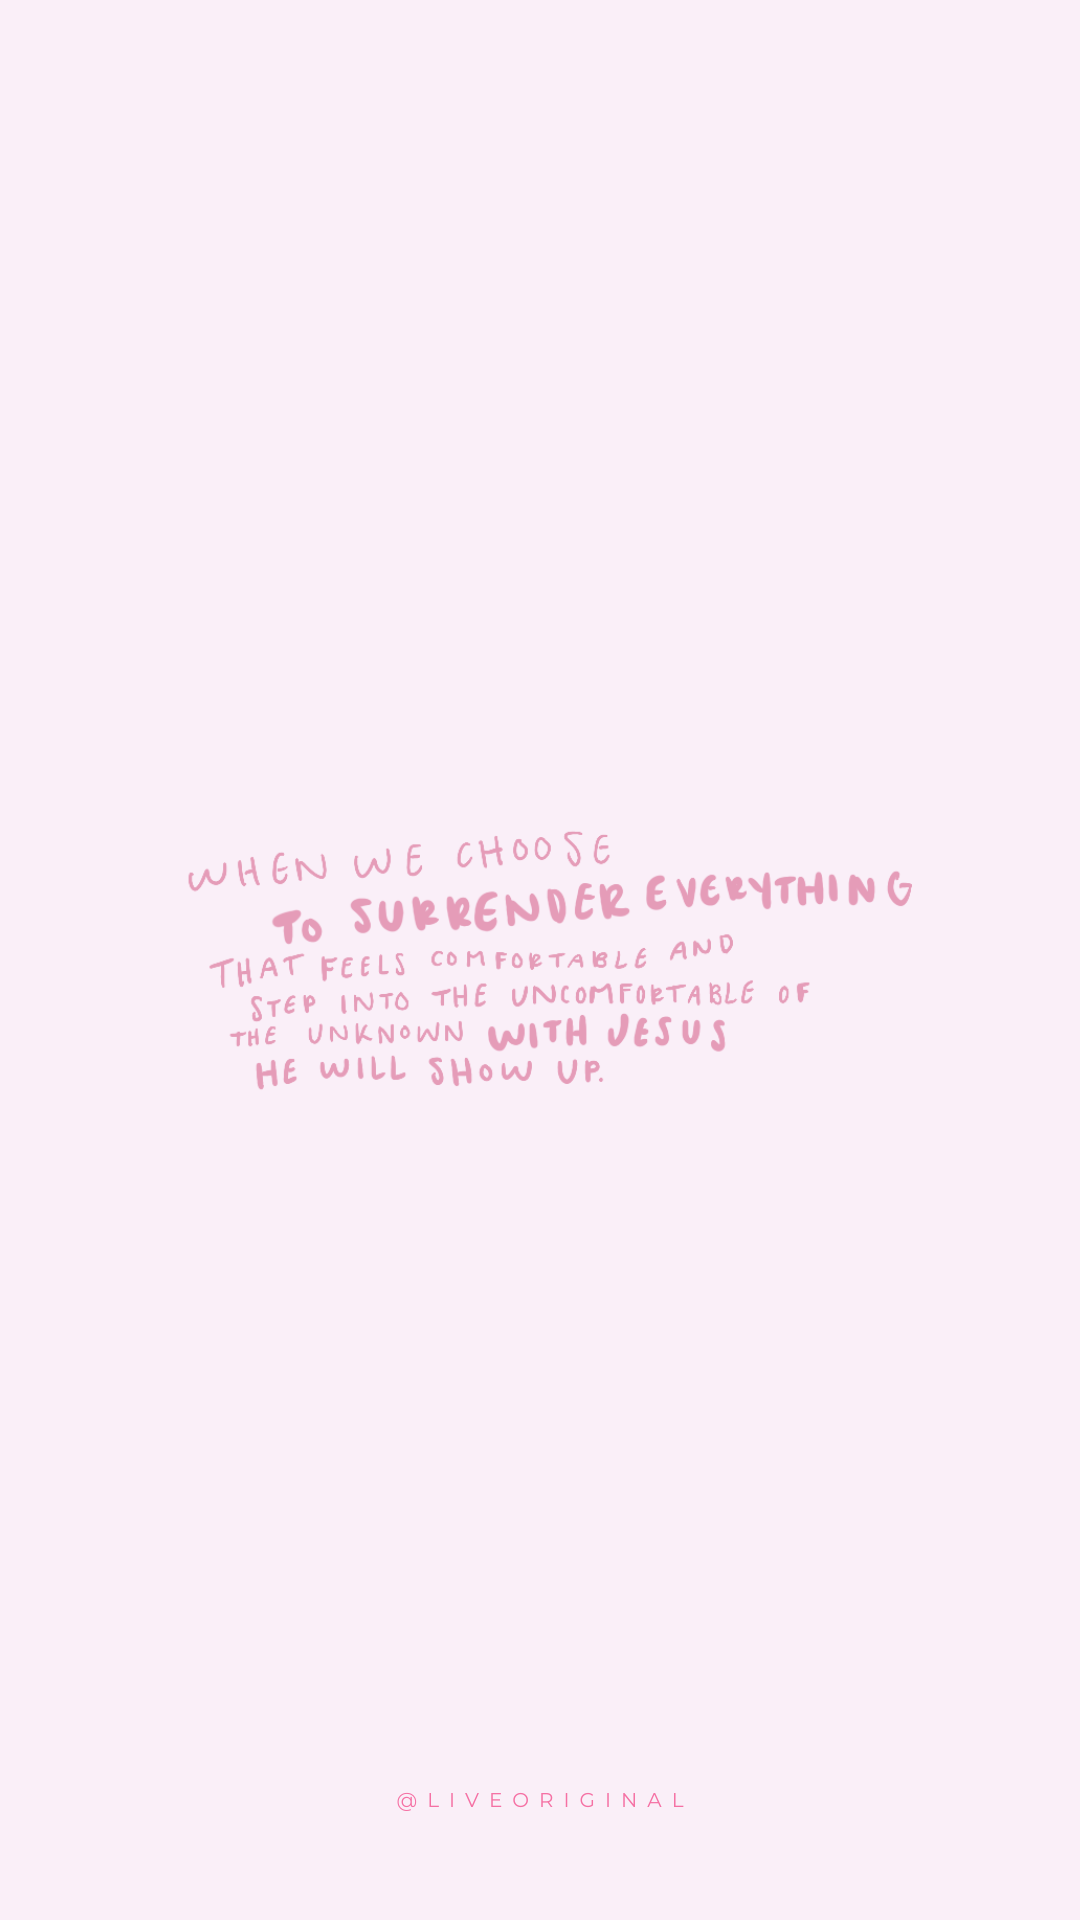 WHEN WE CHOOSE
TO SURRENDER EVERYTHING
THAT FEELS COMFORTABLE AND
STEP INTO THE UNCOMFORTABLE OF
THE UNKNOWN WITH JESUS
HE WILL SHOW UP.
@LIVEORIGINAL